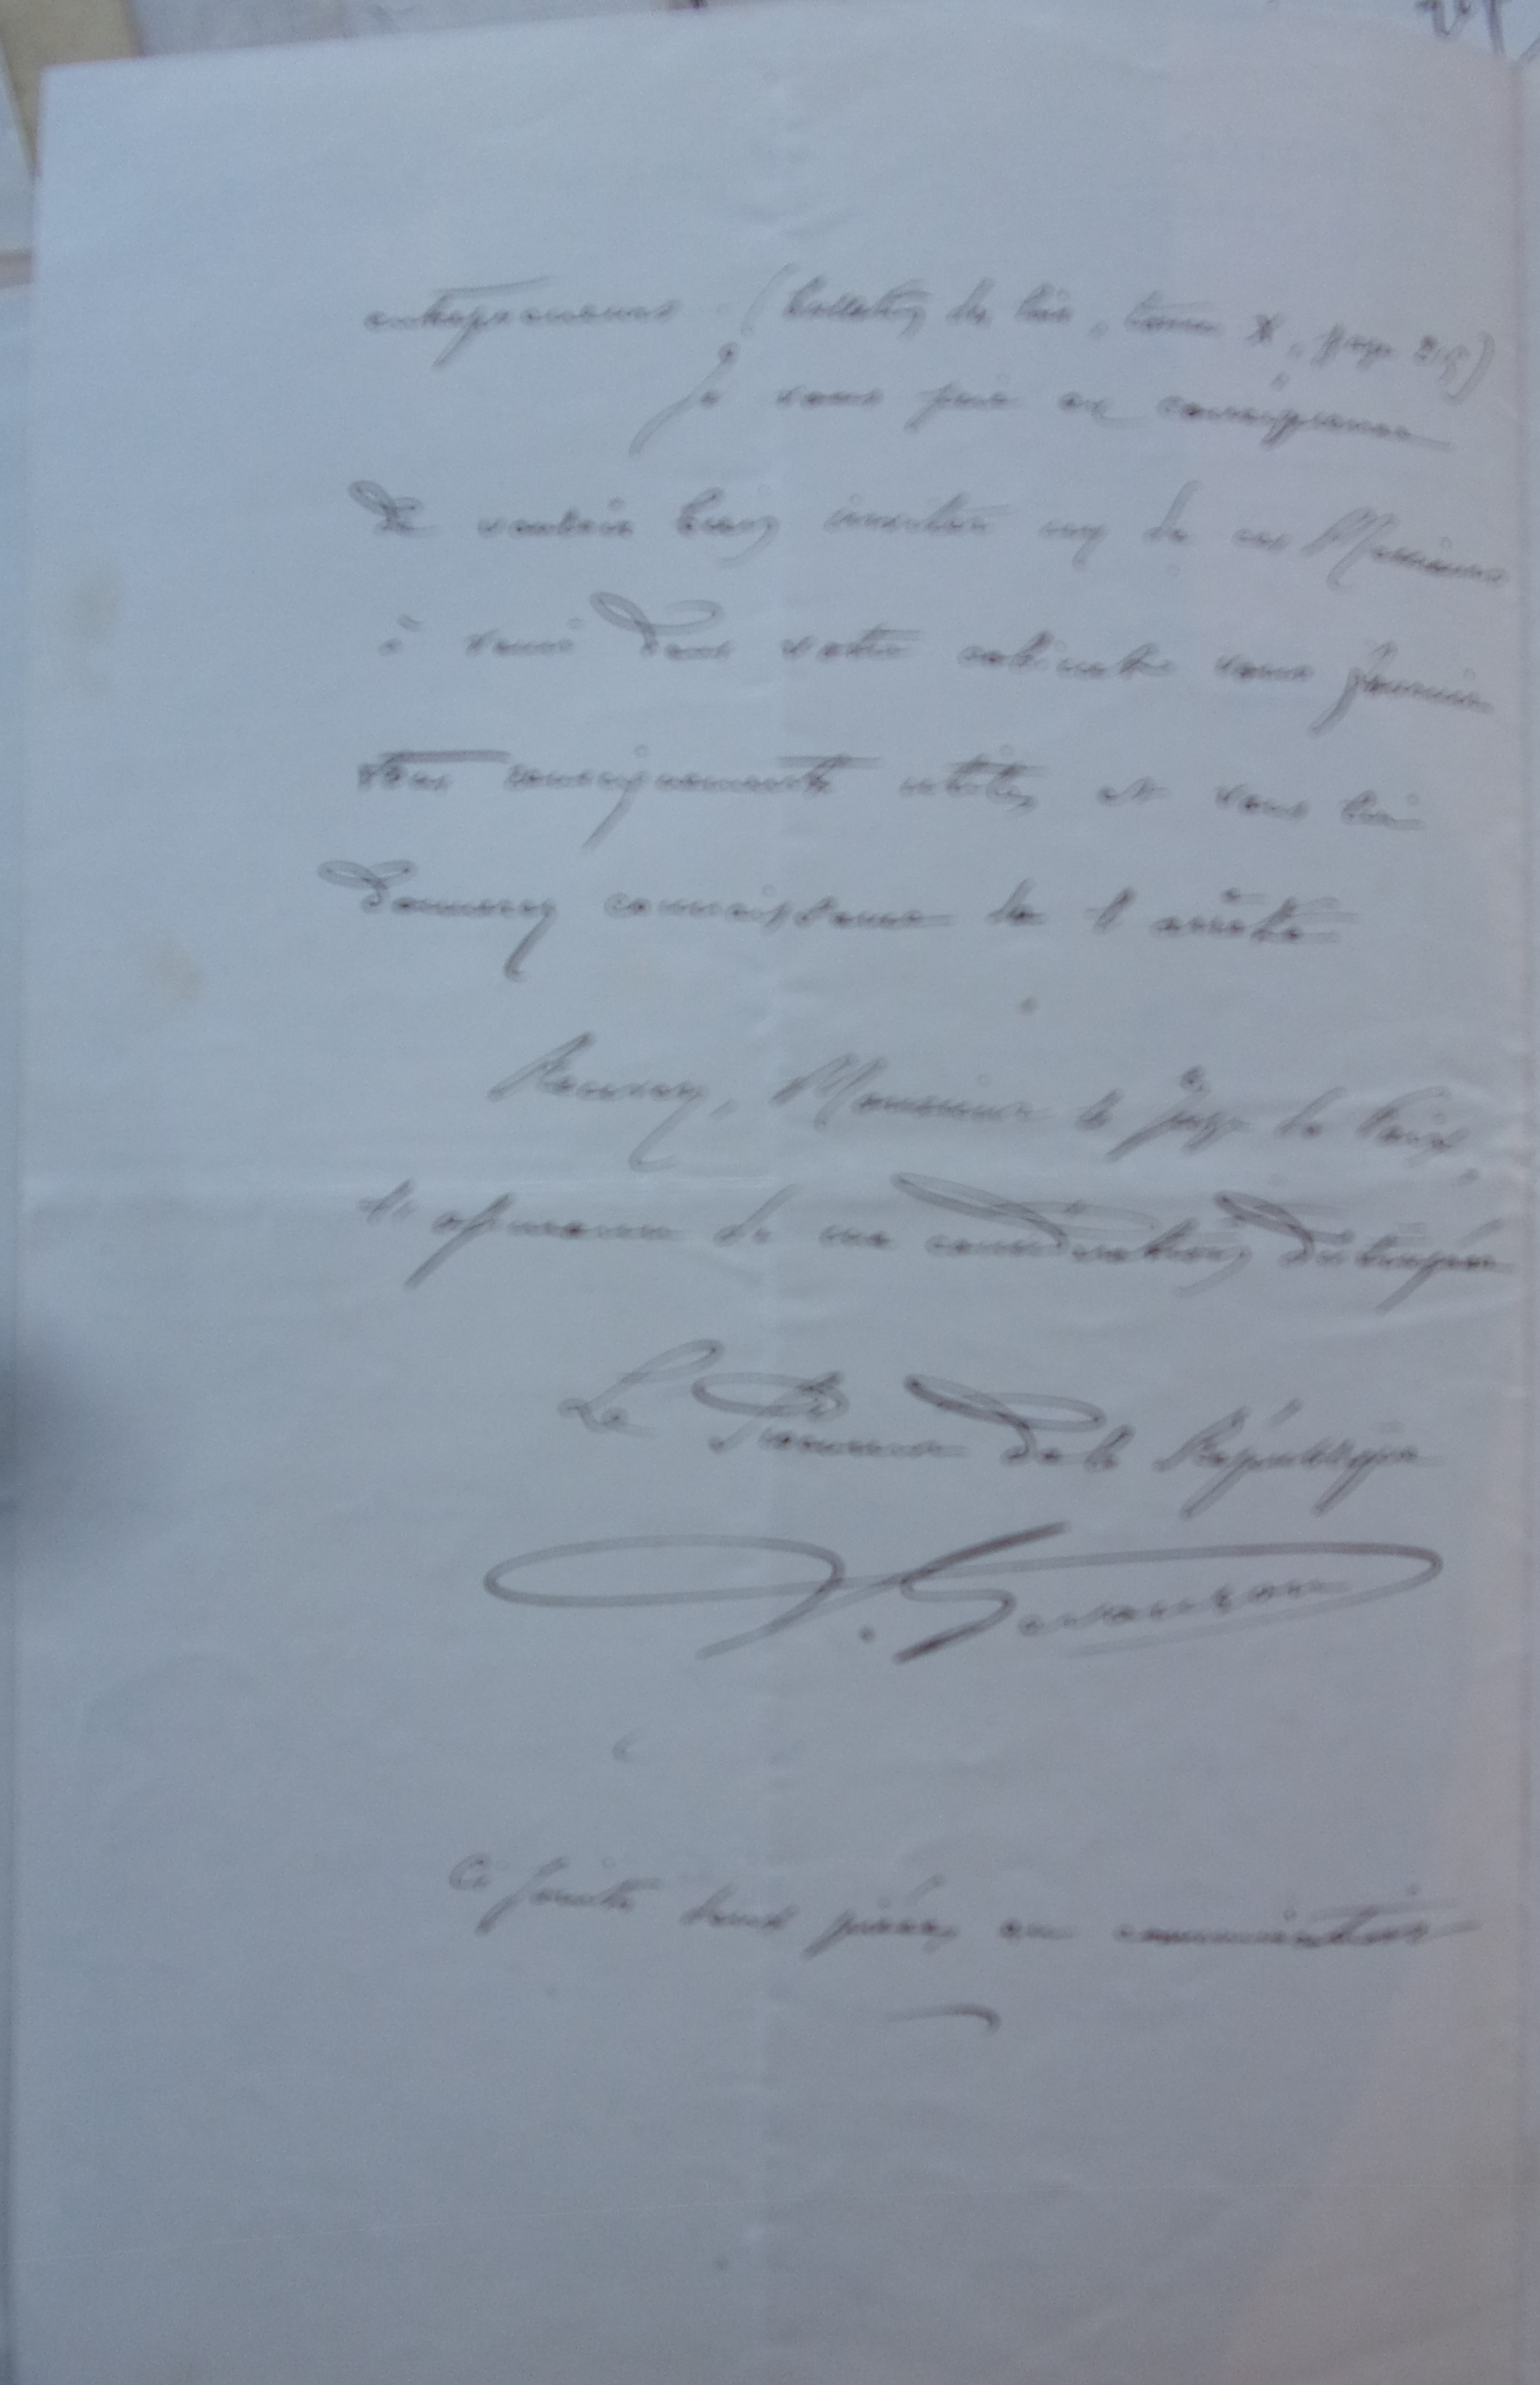 entrepreneurs. (Bulletin des lois, tome X, page 215)
Je vous prie en conséquence
de vouloir bien inviter un de ces Messieurs
à venir dans votre cabinet vous fournir
tous renseignements utiles, et vous lui
donnerez connaissance de l'arrêté
Recevez, Monsieur le Juge de Paix,
l'assurance de ma considération distinguée
Le Procureur de la République
Ci joint deux pièces en communication